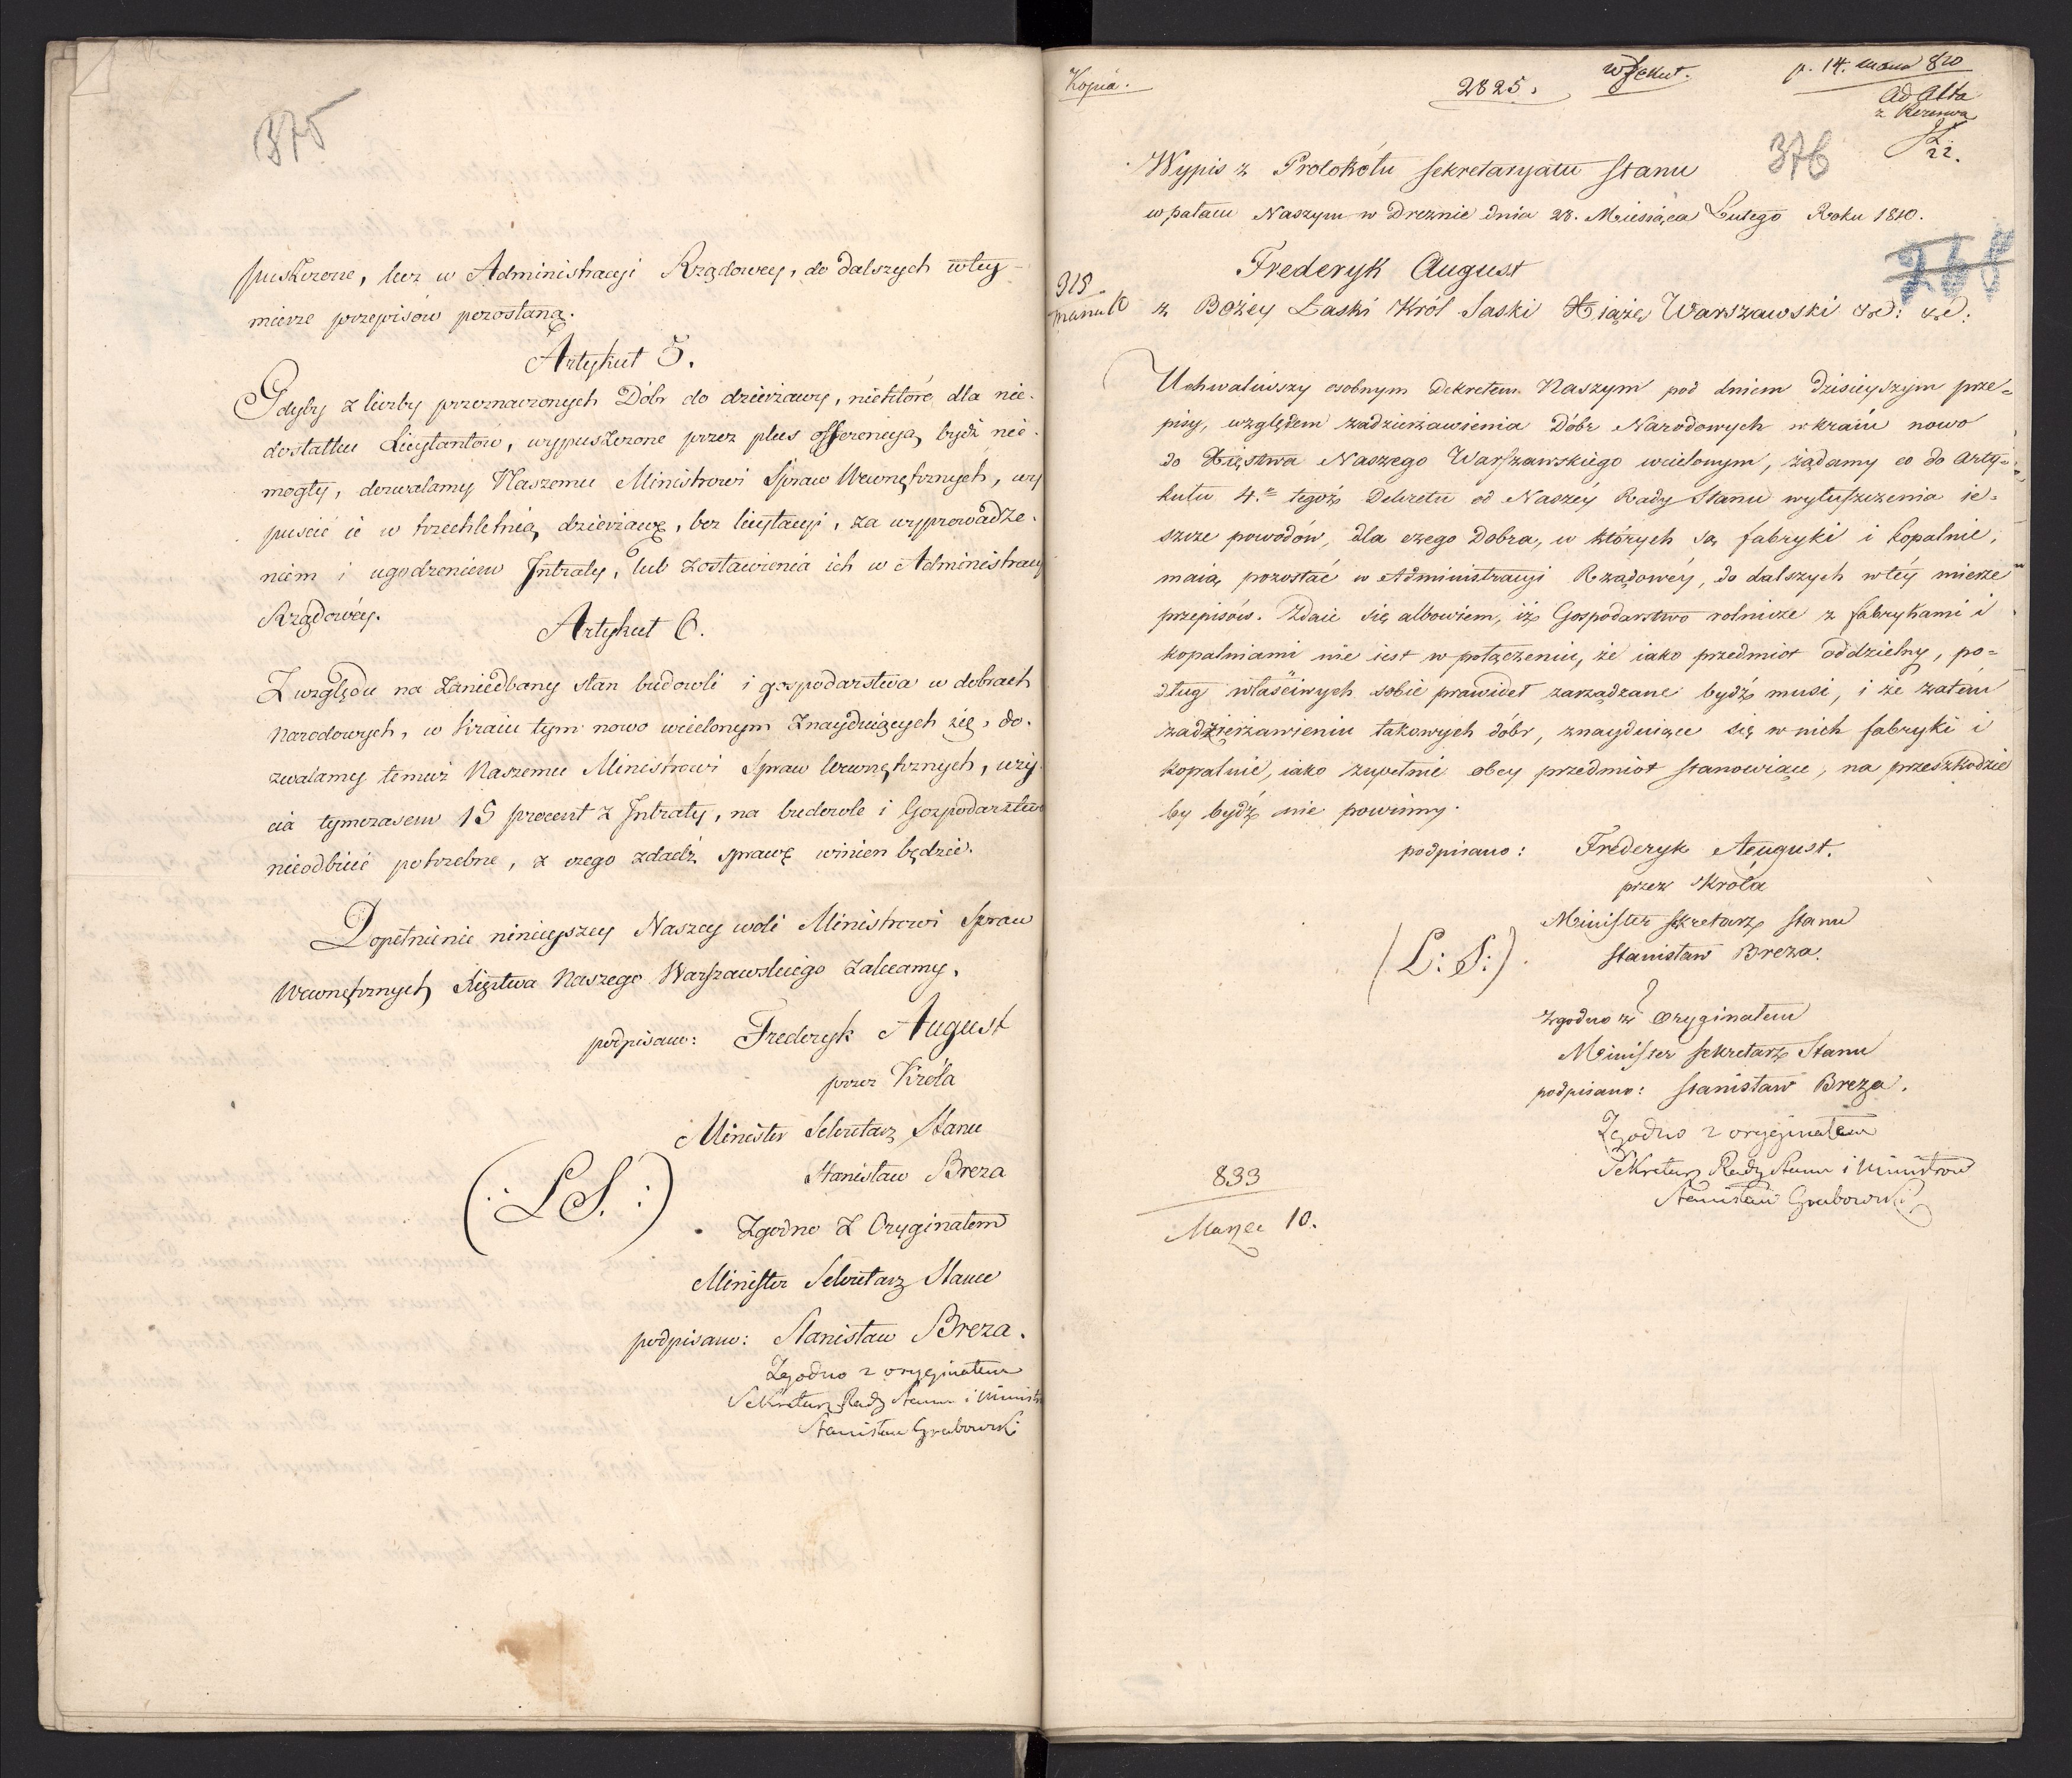 375
puszczone, lecz w Administracyi Rządowey, do dalszych w tey
mierze przepisów pozostaną.
Artykuł 5.
Gdyby z liczby przeznaczonych Dóbr do dzierżawy, niektóre dla nie-
dostatku Licytantów, wypuszczone przez plus offerencyą bydź nie
mogły, dozwalamy Naszemu Ministrowi Spraw Wewnętrznych, wy
puscić ie w trzechletnią dzierżawę, bez licytacyi, za wyprowadze-
niem i ugodzeniem Intraty, lub zostawienia ich w Administracyi
Rządowéy.
Artykuł 6.
Z względu na zaniedbany stan budowli i gospodarstwa w dobrach
Narodowych, w kraiu tym nowo wcielonym znayduiących się, do-
zwalamy temuż Naszemu Ministrowi Spraw Wewnętrznych, uży
cia tymczasem 15 procent z Intraty, na budowle i Gospodarstwo
nieodbicie potrzebne, z czego zdadź sprawę winien będzie.
Dopełnienie ninieyszey Naszey woli Ministrowi Spraw
Wewnętrznych Xięstwa Naszego Warszawskiego zalecamy.
podpisano: Frederyk August
przez Króla
Minister Sekretarz Stanu
Stanisław Breza
(: L S. :)
Zgodno z Oryginałem
Minister Sekretarz Stanu
podpisano: Stanisław Breza.
Zgodno z oryginałem
Sekretarz Rady Stanu i Ministr
Stanisław Grabowski
Kopia.
2825.
p. 14. 810
ad Acta
22.
376
Wypis z Protokółu Sekretaryatu Stanu
w pałacu Naszym w Dreznie dnia 28. Miesiąca Lutego Roku 1810.
268
Frederyk August
318
z Bożey Łaski Król Saski Xiążę Warszawski &c: &c:
Uchwaliwszy osobnym Dekretem Naszym pod dniem dzisieyszym prze=
pisy, względem zadzierżawienia Dóbr Narodowych w kraiu nowo
do Xięstwa Naszego Warszawskiego wcielonym, żądamy co do Arty=
kułu 4.º tegoż Dekretu od Naszéy Rady Stanu wyłuszczenia ie=
szcze powodów, dla czego Dobra, w których są fabryki i kopalnie,
maią pozostać w Administracyi Rządowéy, do dalszych w téy mierze
przepisów. Zdaie się albowiem, iż Gospodarstwo rolnicze z fabrykami i
kopalniami nie iest w połączeniu, że iako przedmiot oddzielny, po=
dług właściwych sobie prawideł zarządzane bydź musi, i że zatém
zadzierżawieniu takowych dóbr, znayduiące się w nich fabryki i
kopalnie, iako zupełnie obcy przedmiot stanowiące, na przeszkodzie
by bydź nie powinny.
podpisano: Frederyk August.
przez Króla
Minister Sekretarz Stanu
(L: S:). Stanisław Breza.
Zgodno z Oryginałem
Minister Sekretarz Stanu
podpisano: Stanisław Breza.
Zgodno z oryginałem
Sekretarz Rady Stanu i Ministrów
Stanisław Grabowski
833
Marzec 10.